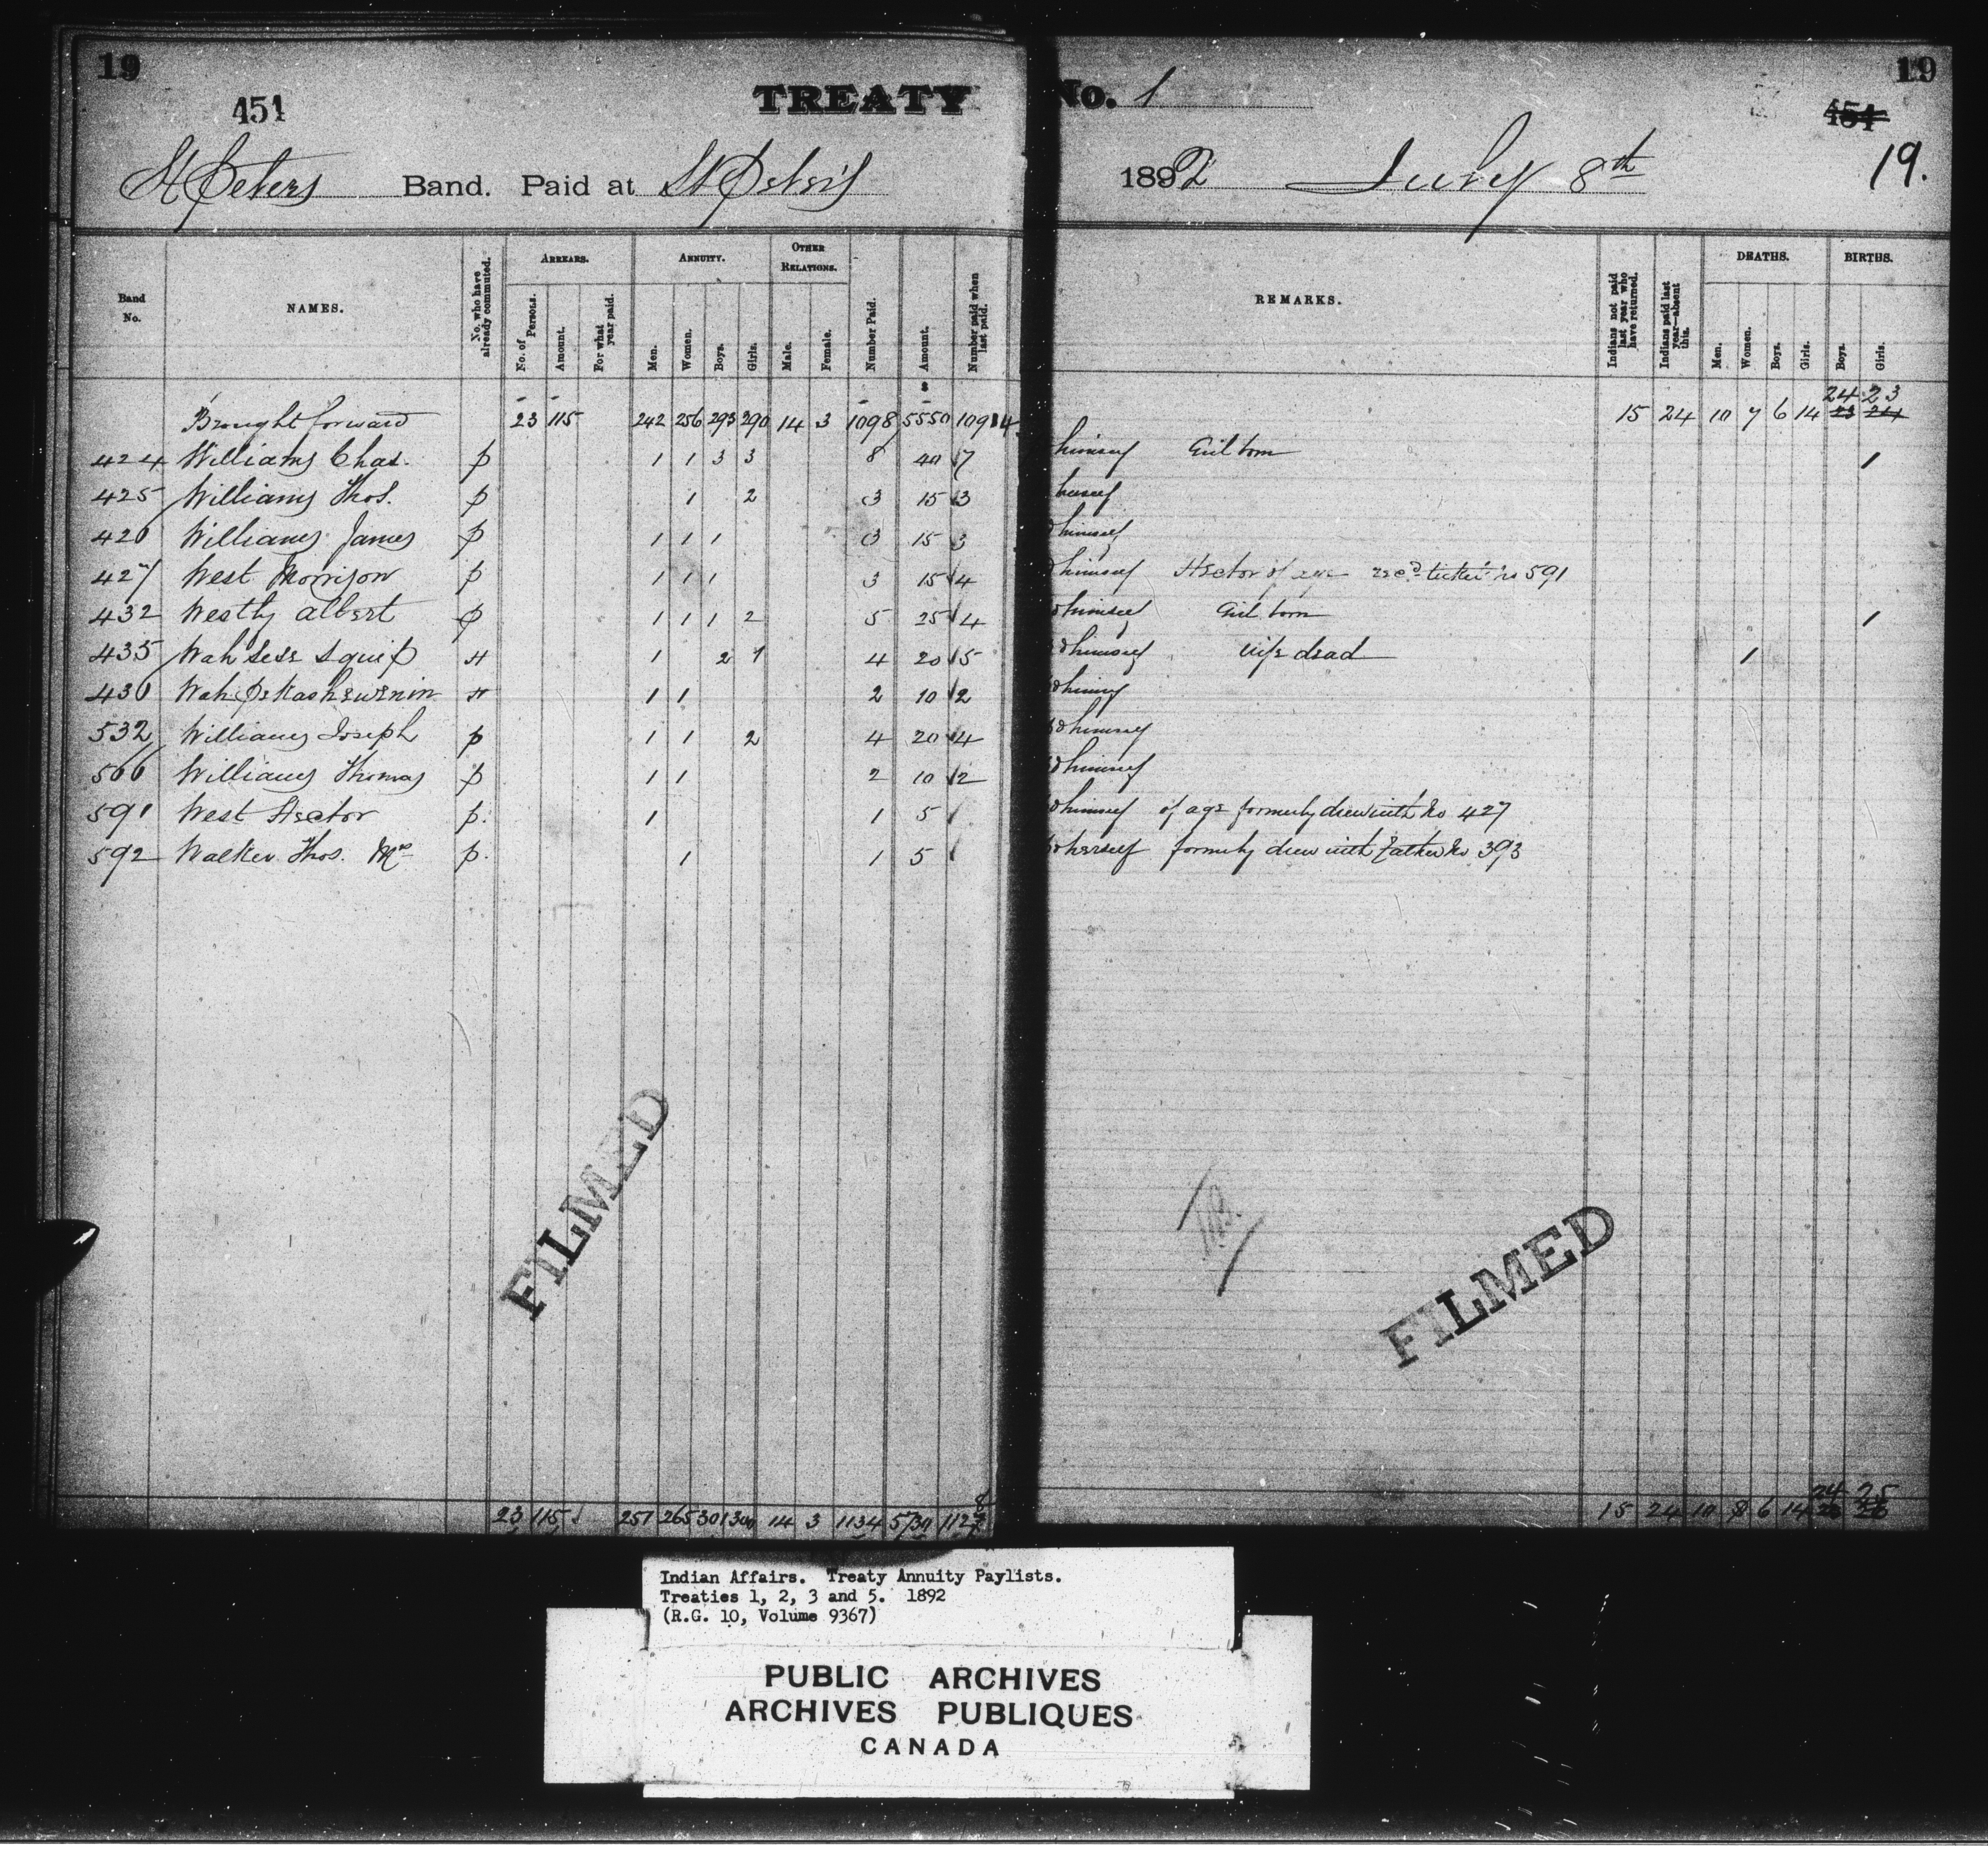 19
451
TREATY
No. 1
19
451
19.
St Peters Band. Paid at St Peters
1892 July 8th
Band No.
NAMES.
No. who have already commuted.
ARREARS.
No. of Persons.
Amount.
For what year paid.
ANNUITY.
Men.
Women.
Boys.
Girls.
OTHER RELATIONS.
Male.
Female.
Number Paid.
Amount.
Number paid when last paid.
REMARKS.
Indians not paid last year who have returned.
Indians paid last year—absent this.
DEATHS.
Men.
Women.
Boys.
Girls.
BIRTHS.
Boys.
Girls.
24 23
Brought forward 23 115 242 256 293 290 14 3 1098 5550 1091 4 15 24 10 7 6 14 23 24
424 Williams Chas. p 1 1 3 3 8 40 7 himself Girl born 1
425 Williams Thos. p 1 2 3 15 3 herself
426 Williams James p 1 1 1 3 15 3 himself
427 West Morrison p 1 1 1 3 15 4 himself Hector of age rec'd ticket No 591
432 Westly Albert p 1 1 1 2 5 25 4 himself Girl born 1
435 Wah sese squip H 1 2 1 4 20 5 himself wife dead 1
436 Wah pe kashewenin H 1 1 2 10 2 himself
532 Williams Joseph p 1 1 2 4 20 4 himself
566 Williams Thomas p 1 1 2 10 2 himself
591 West Hector p. 1 1 5 / himself of age formerly drew with No 427
592 Walker Thos. Mrs p. 1 1 5 / herself formerly drew with Father No 393
FILMED
FILMED
8
24 25
23 115 251 265 301 300 14 3 1134 5730 1127 15 24 10 8 6 14 23 26
Indian Affairs. Treaty Annuity Paylists.
Treaties 1, 2, 3 and 5. 1892
(R.G. 10, Volume 9367)
PUBLIC ARCHIVES
ARCHIVES PUBLIQUES
CANADA